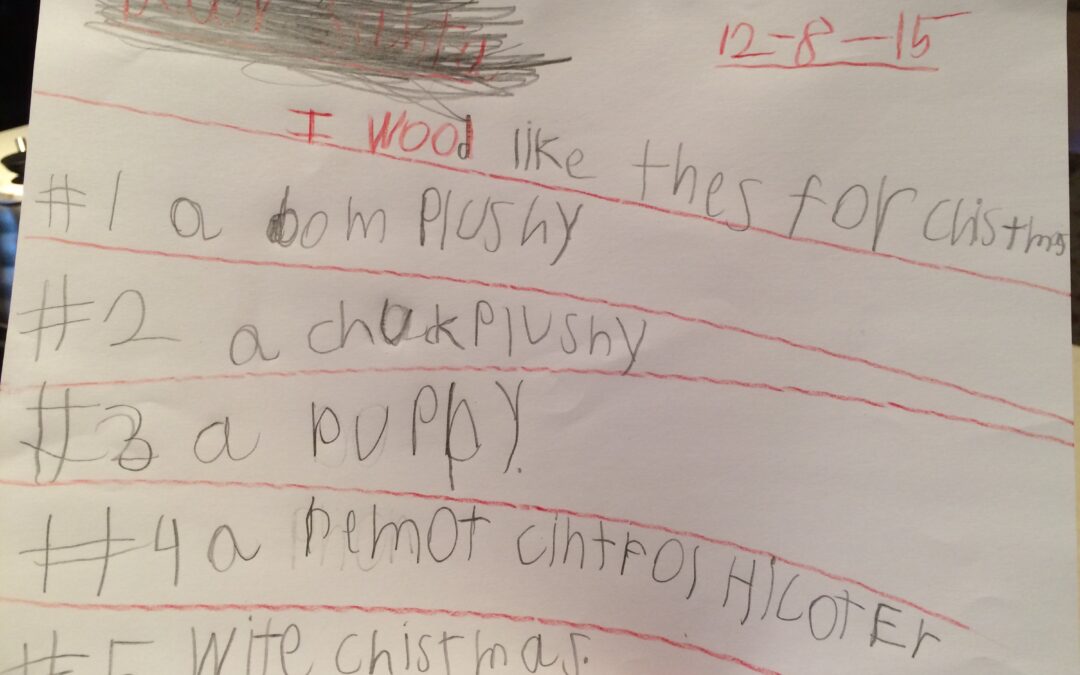 12-8-15
I wood like thes for chistmas
#1 a bom plushy
#2 a chukplushy
#3 a puppy.
#4 a remot cintrol Hicoter
#5 wite chistmas.